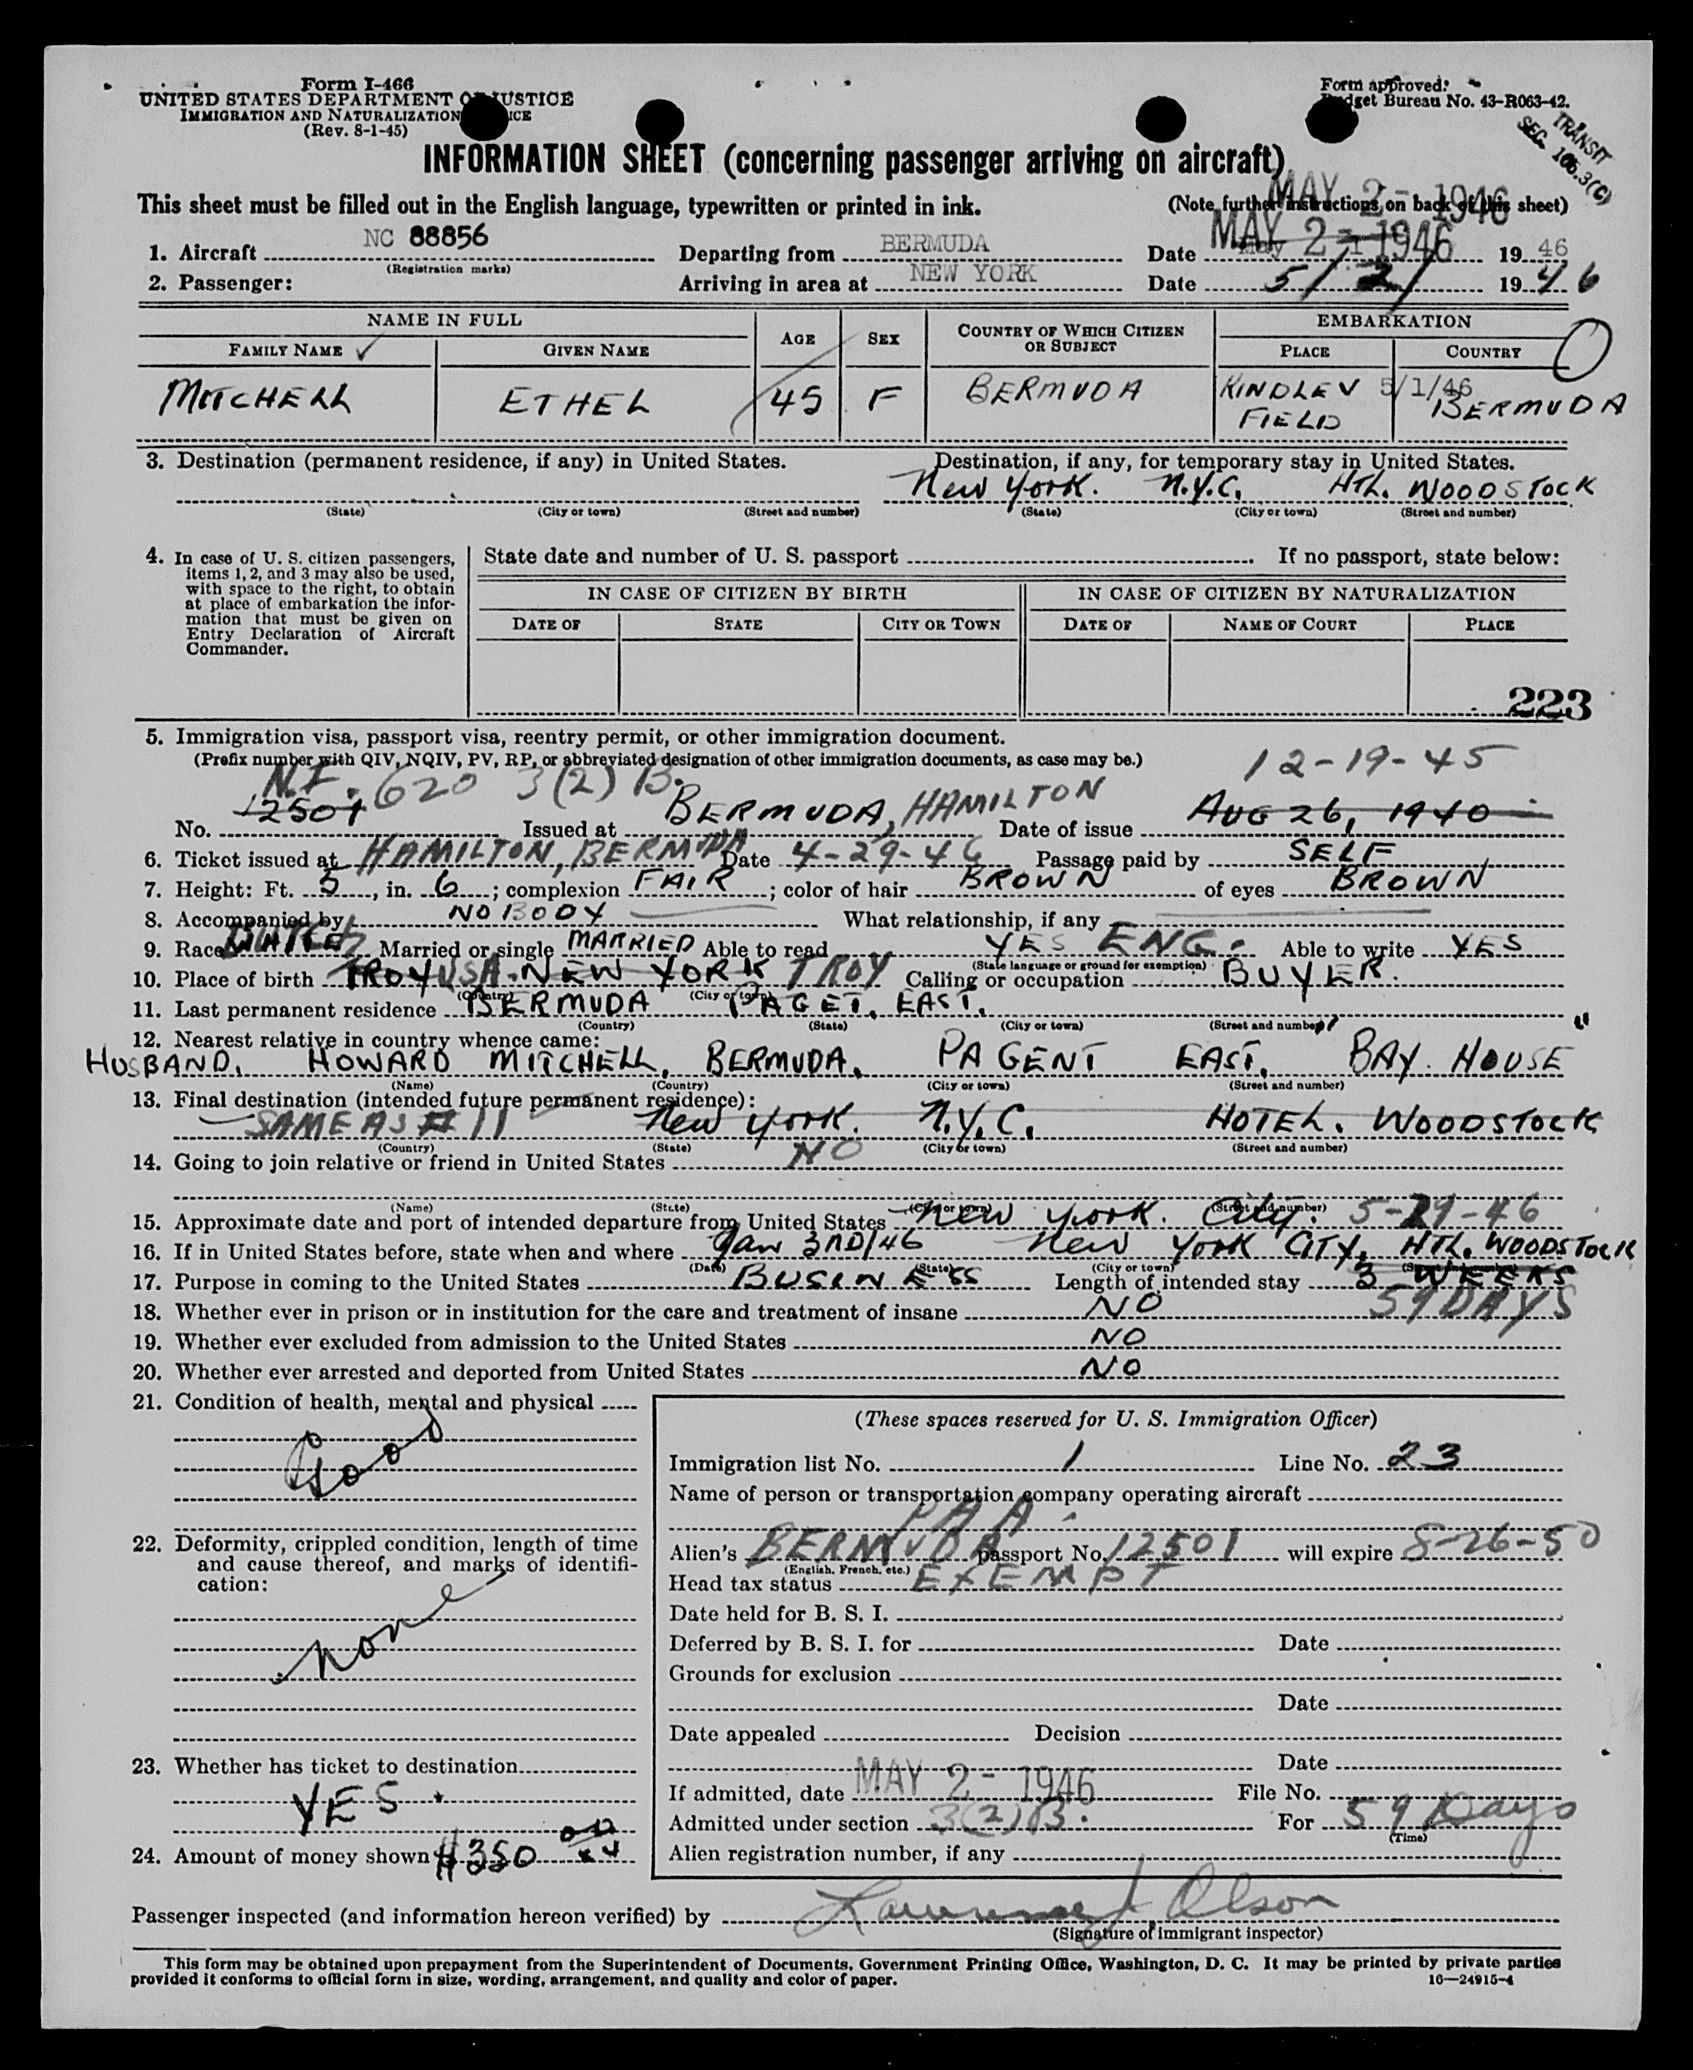 Form I-466
UNITED STATES DEPARTMENT OF JUSTICE
IMMIGRATION AND NATURALIZATION SERVICE
(Rev. 8-1-45)
Form approved:
Budget Bureau No. 43-R063-42.
TRANSIT
SEC. 105.3(C)
INFORMATION SHEET (concerning passenger arriving on aircraft)
MAY 2- 1946
This sheet must be filled out in the English language, typewritten or printed in ink. (Note further instructions on back of this sheet)
1. Aircraft NC 88856 Departing from BERMUDA Date May 1 MAY 2- 1946 19 46
(Registration marks)
2. Passenger: Arriving in area at NEW YORK Date 5/2/ 19 46
NAME IN FULL AGE SEX COUNTRY OF WHICH CITIZEN OR SUBJECT EMBARKATION
FAMILY NAME ✓ GIVEN NAME PLACE COUNTRY O
MITCHELL ETHEL 45 F BERMUDA KINDLEV FIELD 5/1/46 BERMUDA
3. Destination (permanent residence, if any) in United States. Destination, if any, for temporary stay in United States.
New York. N.Y.C. HTL. WOODSTOCK
(State) (City or town) (Street and number) (State) (City or town) (Street and number)
4. In case of U. S. citizen passengers, items 1, 2, and 3 may also be used, with space to the right, to obtain at place of embarkation the information that must be given on Entry Declaration of Aircraft Commander.
State date and number of U. S. passport If no passport, state below:
IN CASE OF CITIZEN BY BIRTH IN CASE OF CITIZEN BY NATURALIZATION
DATE OF STATE CITY OR TOWN DATE OF NAME OF COURT PLACE
223
5. Immigration visa, passport visa, reentry permit, or other immigration document.
(Prefix number with QIV, NQIV, PV, RP, or abbreviated designation of other immigration documents, as case may be.) 12-19-45
N.I. 620 3(2)B.
No. 12501 Issued at BERMUDA, HAMILTON Date of issue AUG 26, 1940
6. Ticket issued at HAMILTON, BERMUDA Date 4-29-46 Passage paid by SELF
7. Height: Ft. 5, in. 6; complexion FAIR; color of hair BROWN of eyes BROWN
8. Accompanied by NOBODY What relationship, if any
9. Race WHITE DUTCH Married or single MARRIED Able to read YES ENG. Able to write YES
(State language or ground for exemption)
10. Place of birth TROY USA. NEW YORK TROY Calling or occupation BUYER.
(Country) (City or town)
11. Last permanent residence BERMUDA PAGET, EAST.
(Country) (State) (City or town) (Street and number)
12. Nearest relative in country whence came:
HUSBAND. HOWARD MITCHELL, BERMUDA. PAGENT EAST, "BAY HOUSE"
(Name) (Country) (City or town) (Street and number)
13. Final destination (intended future permanent residence):
SAME AS # 11 New York. N.Y.C. HOTEL. WOODSTOCK
(Country) (State) (City or town) (Street and number)
14. Going to join relative or friend in United States NO
(Name) (State) (City or town) (Street and number)
15. Approximate date and port of intended departure from United States New York. City. 5-29-46
16. If in United States before, state when and where Jan 3RD/46 New York CITY, HTL. WOODSTOCK
(Date) (State) (City or town) (Street and number)
17. Purpose in coming to the United States BUSINESS Length of intended stay 3 WEEKS
59 DAYS
18. Whether ever in prison or in institution for the care and treatment of insane NO
19. Whether ever excluded from admission to the United States NO
20. Whether ever arrested and deported from United States NO
21. Condition of health, mental and physical
Good
22. Deformity, crippled condition, length of time and cause thereof, and marks of identification:
none
23. Whether has ticket to destination
YES.
24. Amount of money shown $350 00/xx
(These spaces reserved for U. S. Immigration Officer)
Immigration list No. 1 Line No. 23
Name of person or transportation company operating aircraft
PAA.
Alien's BERMUDA passport No. 12501 will expire 8-26-50
(English, French, etc.)
Head tax status EXEMPT
Date held for B. S. I.
Deferred by B. S. I. for Date
Grounds for exclusion
Date
Date appealed Decision
Date
If admitted, date MAY 2- 1946 File No.
Admitted under section 3(2)B. For 59 Days
(Time)
Alien registration number, if any
Passenger inspected (and information hereon verified) by Lawrence J Olson
(Signature of immigrant inspector)
This form may be obtained upon prepayment from the Superintendent of Documents, Government Printing Office, Washington, D. C. It may be printed by private parties
provided it conforms to official form in size, wording, arrangement, and quality and color of paper. 16—24915-4